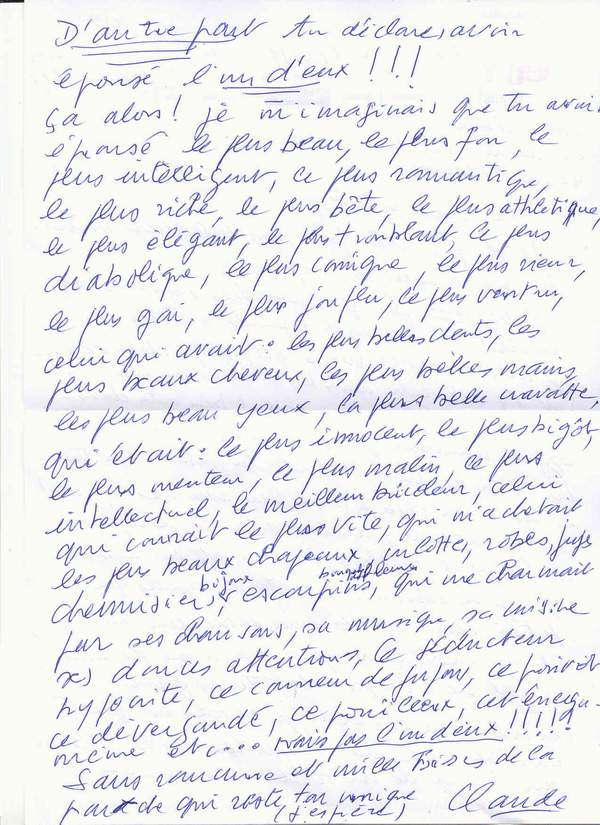 D'autre part tu déclares avoir
épousé l'un d'eux !!!
ça alors! je m'imaginais que tu avais
épousé le plus beau, le plus fou, le
plus intelligent, le plus romantique,
le plus riche, le plus bête, le plus athlétique,
le plus élégant, le plus troublant, le plus
diabolique, le plus comique, le plus rieur,
le plus gai, le plus joufflu, le plus ventru,
celui qui avait : les plus belles dents, les
plus beaux cheveux, les plus belles mains,
les plus beau yeux, la plus belle cravatte,
qui était : le plus innocent, le plus bigôt,
le plus menteur, le plus malin, le plus
intellectuel, le meilleur bricoleur, celui
qui courait le plus vite, qui m'achetait
les plus beaux chapeaux, culottes, robes, jupes
chemisiers, bijoux, escarpins, qui me charmait
par ses chansons, sa musique, sa cuisine
ses douces attentions, le séducteur
hypocrite, ce coureur de jupons, ce
ce dévergandé, ce pouilleux, cet énergu-
mène et .... mais pas l'un d'eux !!!!!
Sans rancune et mille bises de la
part de qui reste ton unique
(j'espère) Claude